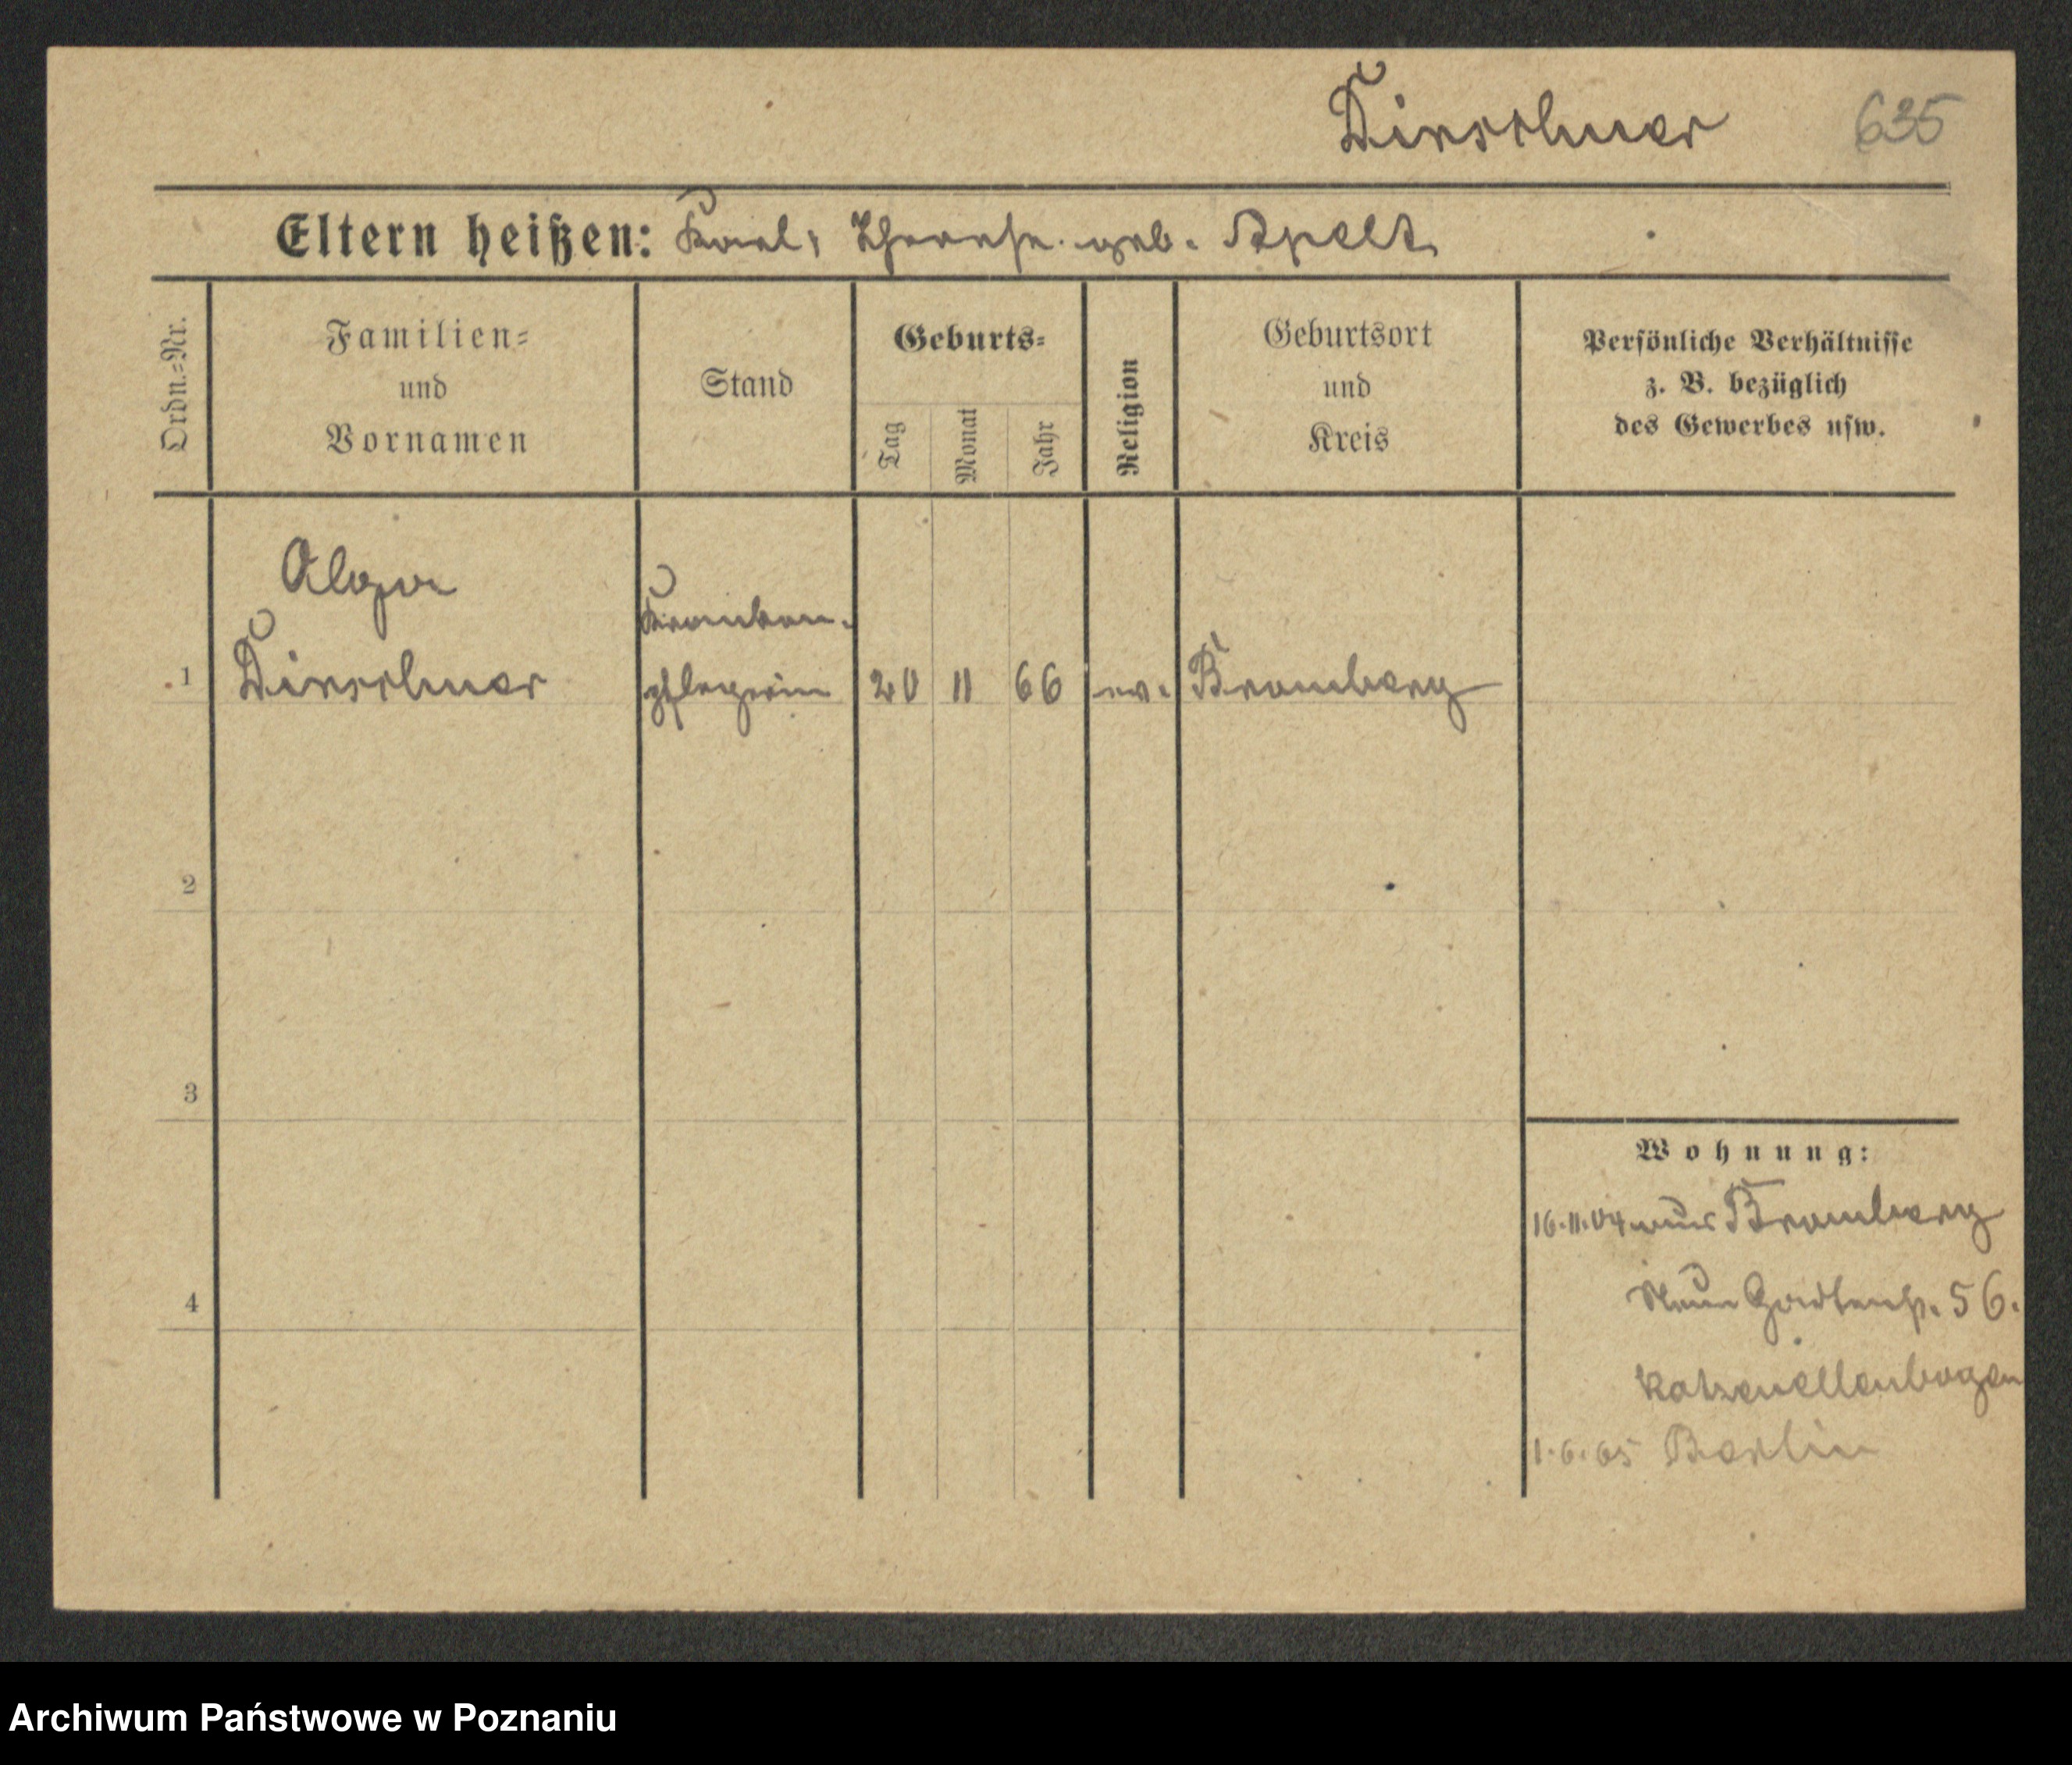 Kirschner 635
Eltern heißen: Karl, Therese geb. Apelt
Ordn.=Nr.
Familien=
und
Vornamen
Stand
Geburts=
Tag
Monat
Jahr
Religion
Geburtsort
und
Kreis
Persönliche Verhältnisse
z. B. bezüglich
des Gewerbes usw.
Olga
Kranken-
1 Kirschner pflegerin 20 11 66 ev. Bromberg
2
3
4
Wohnung:
16.11.04 aus Bromberg
Neue Gartenstr. 56.
Katzenellenbogen
1.6.05 Berlin
Archiwum Państwowe w Poznaniu